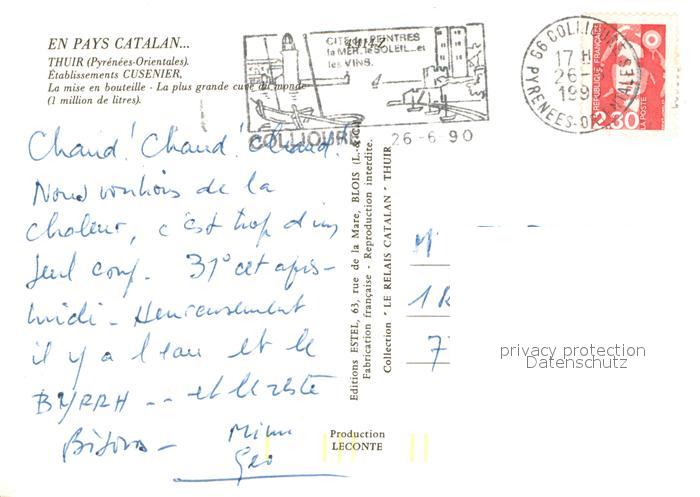 EN PAYS CATALAN...
THUIR (Pyrénées-Orientales).
Établissements CUSENIER,
La mise en bouteille - La plus grande cuve du monde
(1 million de litres).
CITÉ des PEINTRES
la MER, le SOLEIL...et
les VINS.
COLLIOURE
26-6-90
66 COLLIOURE
17 H
26-
199
PYRENEES-OR
REPUBLIQUE FRANÇAISE
LA POSTE
2.30
Chaud! Chaud! Chaud!
Nous voulions de la
chaleur, c'est trop d'un
seul coup. 31° cet après-
midi - Heureusement
il y a l'eau et le
BYRRH -- et le reste
Bisous -
Mimi
Géo
Editions ESTEL, 63, rue de la Mare, BLOIS (L.-&-C.)
Fabrication française - Reproduction interdite.
Collection "LE RELAIS CATALAN" THUIR
M
1 R
7
privacy protection
Datenschutz
Production
LECONTE